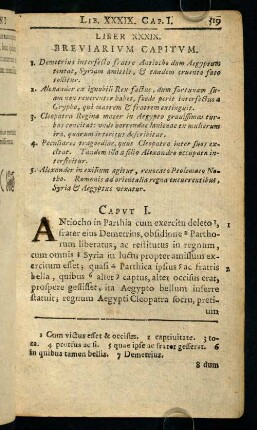 LIB. XXXIX. CAP. I. 519
LIBER XXXIX.
BREVIARIVM CAPITVM.
1. Demetrius interfecto fratre Antiocho dum Aegyptum
tentat, Syriam amittit, & tandem cruento fato
tollitur.
2. Alexander ex ignobili Rex factus, dum fortunam su-
am non reverenter habet, fœde perit interfectus à
Grypho, qui matrem & fratrem extinguit.
3. Cleopatra Regina mater in Aegypto gravissimas tur-
bas concitat: unde horrendae lanienae ex mulierum
ira, quarum interitus describitur.
4. Peculiares tragoediae, quas Cleopatra inter suos ex-
citat. Tandem illa à filio Alexandro occupata in-
terficitur.
5. Alexander in exilium agitur, revocato Ptolemaeo No-
tho. Romanis ad orientalia regna incurrentibus,
Syria & Aegyptus vexatur.
CAPVT I.
ANtiocho in Parthia cum exercitu deleto 1, 1
frater eius Demetrius, obsidione 2 Partho-
rum liberatus, ac restitutus in regnum,
cum omnis 3 Syria in luctu propter amissum ex-
ercitum esset; quasi 4 Parthica ipsius 5 ac fratris 2
bella, quibus 6 alter 7 captus, alter occisus erat,
prospere gessisset, ita Aegypto bellum inferre
statuit; regnum Aegypti Cleopatra socru, preti-
um
1 Cum victus esset & occisus. 2 captivitate. 3 to-
ta. 4 proelius ac si. 5 quae ipse ac frater gesserat. 6
in quibus tamen bellis. 7 Demetrius.
8 dum